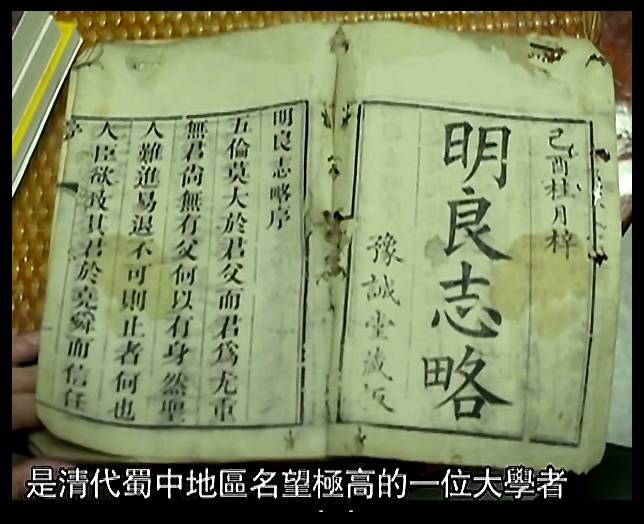 己酉桂月梓
明良志略
豫誠堂藏板
明良志略序
五倫莫大於君父而君爲尤重
無君尚無有父何以有身然聖
人難進易退不可則止者何也
人臣欲致其君於堯舜而信任
是清代蜀中地區名望極高的一位大學者